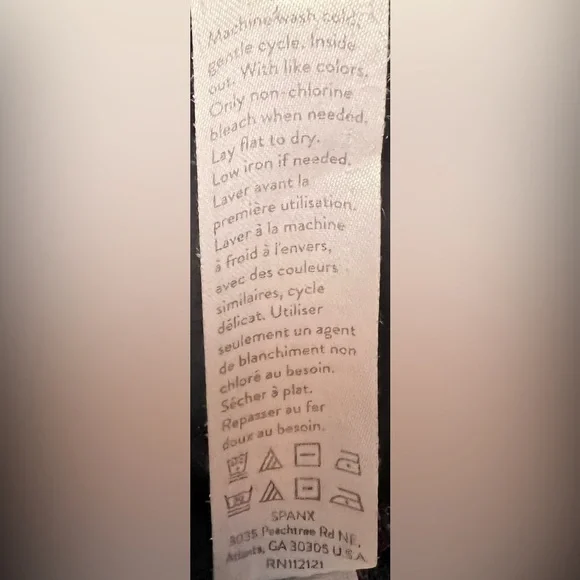 Machine wash cold,
gentle cycle. Inside
out. With like colors.
Only non-chlorine
bleach when needed.
Lay flat to dry.
Low iron if needed.
Laver avant la
première utilisation.
Laver à la machine
à froid à l'envers,
avec des couleurs
similaires, cycle
délicat. Utiliser
seulement un agent
de blanchiment non
chloré au besoin.
Sécher à plat.
Repasser au fer
doux au besoin.
SPANX
3035 Peachtree Rd NE,
Atlanta, GA 30305 U.S.A
RN112121